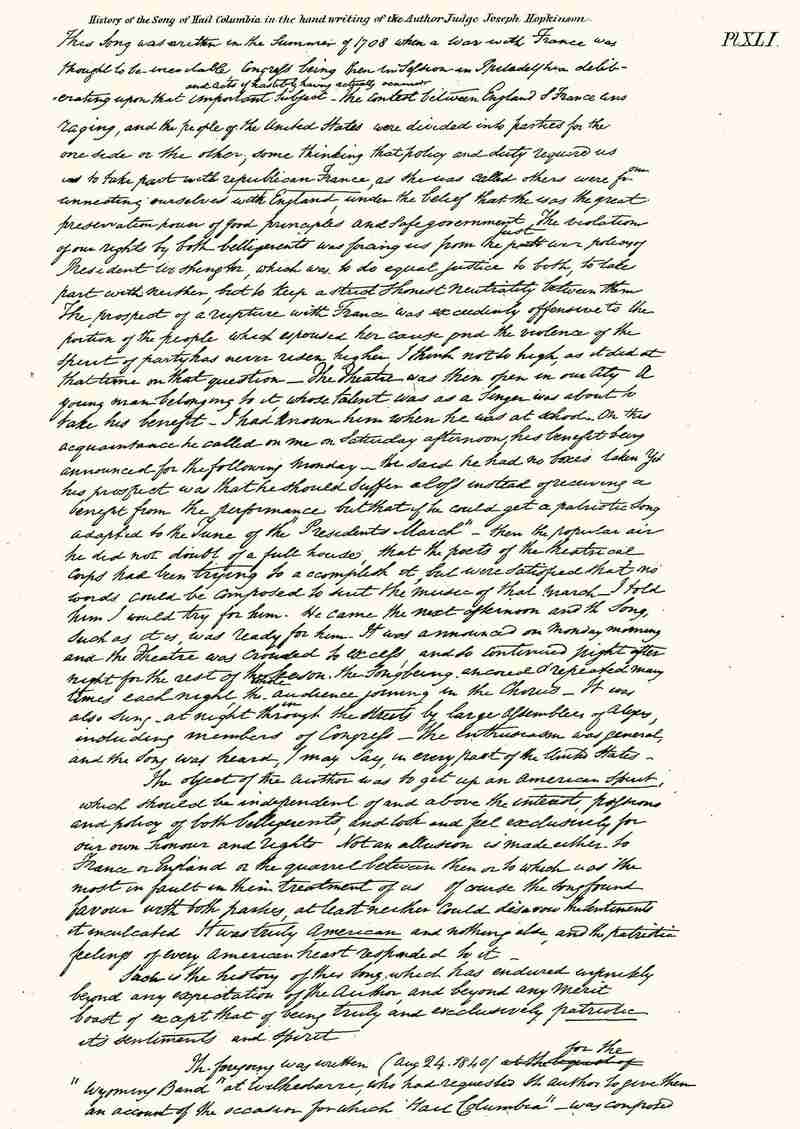 History of the Song of Hail Columbia in the hand writing of the Author Judge Joseph Hopkinson.
Pl XLI.
This Song was written in the Summer of 1798 when a War with France was
thought to be inevitable, Congress being then in Session in Philadelphia delib-
and acts of hostility having actually occurred
-erating upon that important Subject - The contest between England & France was
raging, and the people of the United States were divided into parties for the
one side or the other; some thinking that policy and duty required us
to take part with republican France, as she was called others were for con
-nnecting ourselves with England, under the belief that she was the great
preservation power of good principles and safe government. The violation
just
of our rights by both belligerents was forcing us from the and wise policy of
President Washington, which was to do equal justice to both, to take
part with neither, but to keep a strict & honest neutrality between them
The prospect of a rupture with France was exceedingly offensive to the
portion of the people which espoused her cause and the violence of the
spirit of party has never risen higher, I think not so high, as it did at
that time on that question - The Theatre was then open in our City A
young man belonging to it whose talent was as a Singer was about to
take his benefit - I had known him when he was at school. On this
acquaintance he called on me on Saturday afternoon, his benefit being
announced for the following Monday - He said he had no boxes taken Yet
his prospect was that he should suffer a loss instead of receiving a
benefit from the performance but that if he could get a patriotic Song
adapted to the Tune of the "Presidents March" - then the popular air
he did not doubt of a full house; that the poets of the theatrical
Corps had been trying to accomplish it, but were satisfied that no
words could be composed to suit the music of that March - I told
him I would try for him. He came the next afternoon and the Song,
such as it is, was ready for him - It was announced on Monday morning
and the Theatre was crowded to excess and so continued night after
night for the rest of the Season. the Song being encored & repeated many
times each night, the audience joining in the Chorus - It was
also sung at night through the streets by large assemblies of
including members of Congress - The enthusiasm was general,
and the Song was heard, I may say, in every part of the United States -
The object of the Author was to get up an American Spirit,
which should be independent of and above the interest, passions
and policy of both belligerents, and look and feel exclusively for
our own honour and rights Not an allusion is made either to
France or England or the quarrel between them or to which was the
most in fault in their treatment of us Of course the song found
favour with both parties, at least neither could disavow the sentiments
it inculcated It was truly American and nothing else, and the patriotic
feelings of every American heart responded to it -
Such is the history of this song, which has endured infinitely
beyond any expectation of the Author, and beyond any Merit
boast of except that of being truly and exclusively patriotic
its sentiments and spirit
for the
The foregoing was written (Aug 24. 1840) at the request of
"Wyoming Band" at Wilkesbarre, who had requested the author to give them
an account of the occasion for which "Hail Columbia" - was composed